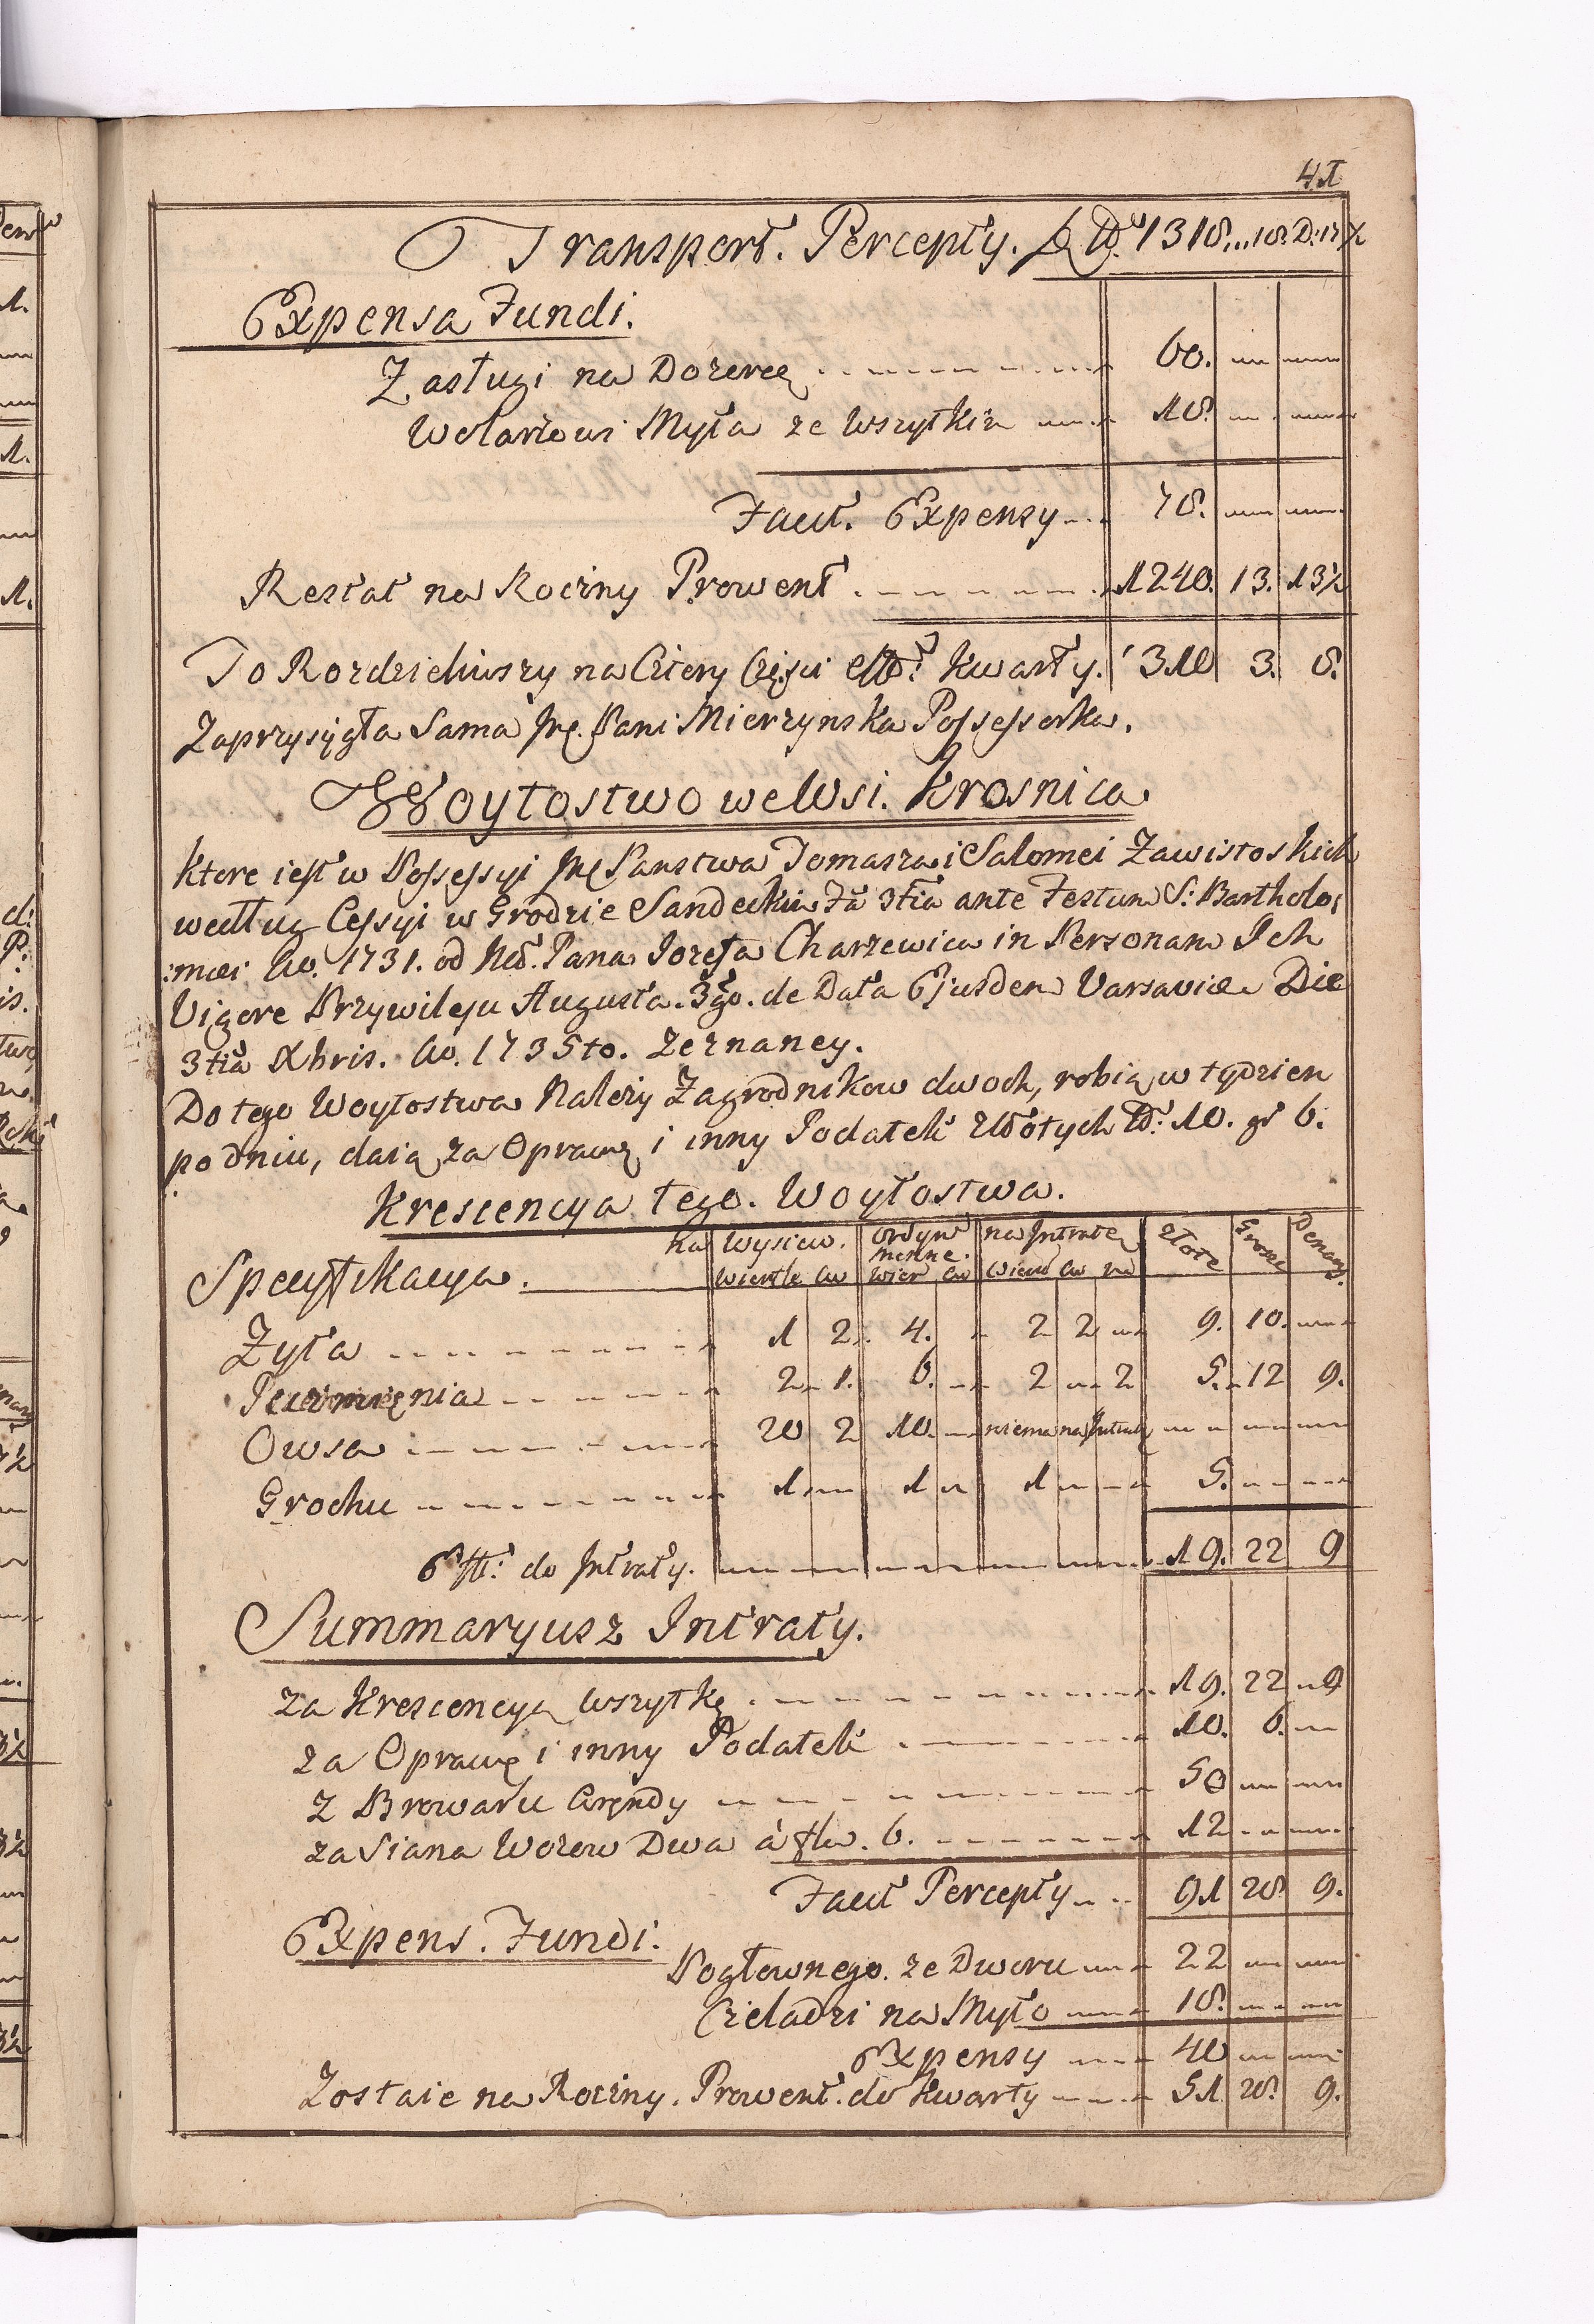 41
Transport. Percepty. 1318...18.
Expensa Fundi.
Zasługi na Dozercę 60.
Wolarzowi Myta ze Wszytkim 18.
Facit. Expensy 78.
Restat na Roczny Prowent 1240. 13. 13½
To Rozdzieliwszy na Cztery Części Kwarty. 310 3. 8.
Zaprzysięgła Sama Jmę. Pani Mierzynska Possessorka.
Woytostwo we Wsi. Krosnica
Ktore iest w Possessyi Jmę Panstwa Tomasza i Salomei Zawistoskich
według Cessyi w Grodzie Sandeckim Fa 3tia ante Festum S: Bartholo:
:mæi Ao. 1731. od Pana Jozefa Charzewica in Personam Ich
Vigore Przywileju Augusta. 3go. de Data Ejusdem Varsaviæ Die
3tia Xbris. Ao. 1735to. Zeznaney.
Do tego Woytostwa Nalezy Zagrodnikow dwoch, robią w tydzien
po dniu, daią za Oprawę i inny Podatek Złłotych 10. gr 6.
Krescencya tego. Woytostwa.
Specyfikacya. na Wysiew. Ordyn menne. na Intratę Złote Grosze Denary.
Wiertle Cw Wier Cw Wiert Cw
Zyta 1 2. 4. 2 2 9. 10.
Jęczmięnia 2 1. 6. 2 2 5. 12 9.
Owsa 20 2 10. niema na Intratę
Grochu 1 1 1 5.
Est: do Intraty. 19. 22 9
Summaryusz Intraty.
za Krescencyą wszytkę 19. 22 9
za Oprawę i inny Podatek 10. 6.
z Browaru Aręndy 50
za Siana Wozow Dwa á fw. 6. 12
Facit Percepty 91 28 9.
Expens. Fundi.
Pogłownego. ze Dworu 22
Czeladzi na Myto 18.
Expensy 40
Zostaie na Roczny. Prowent. do Kwarty 51 28. 9.